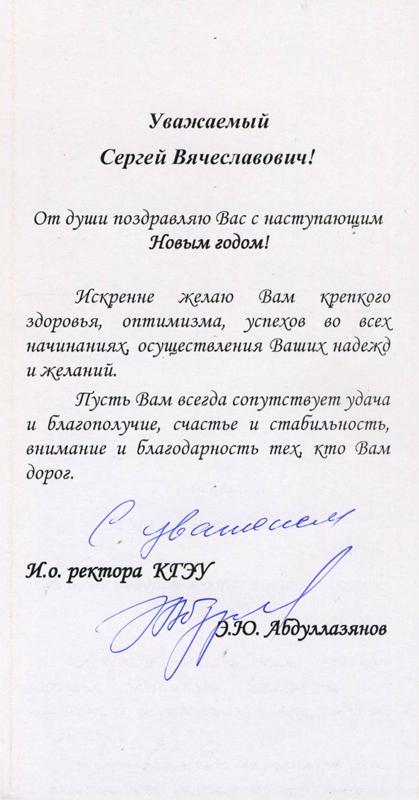 Уважаемый
Сергей Вячеславович!
От души поздравляю Вас с наступающим
Новым годом!
Искренне желаю Вам крепкого
здоровья, оптимизма, успехов во всех
начинаниях, осуществления Ваших надежд
и желаний.
Пусть Вам всегда сопутствует удача
и благополучие, счастье и стабильность,
внимание и благодарность тех, кто Вам
дорог.
С уважением
И.о. ректора КГЭУ
Э.Ю. Абдуллазянов